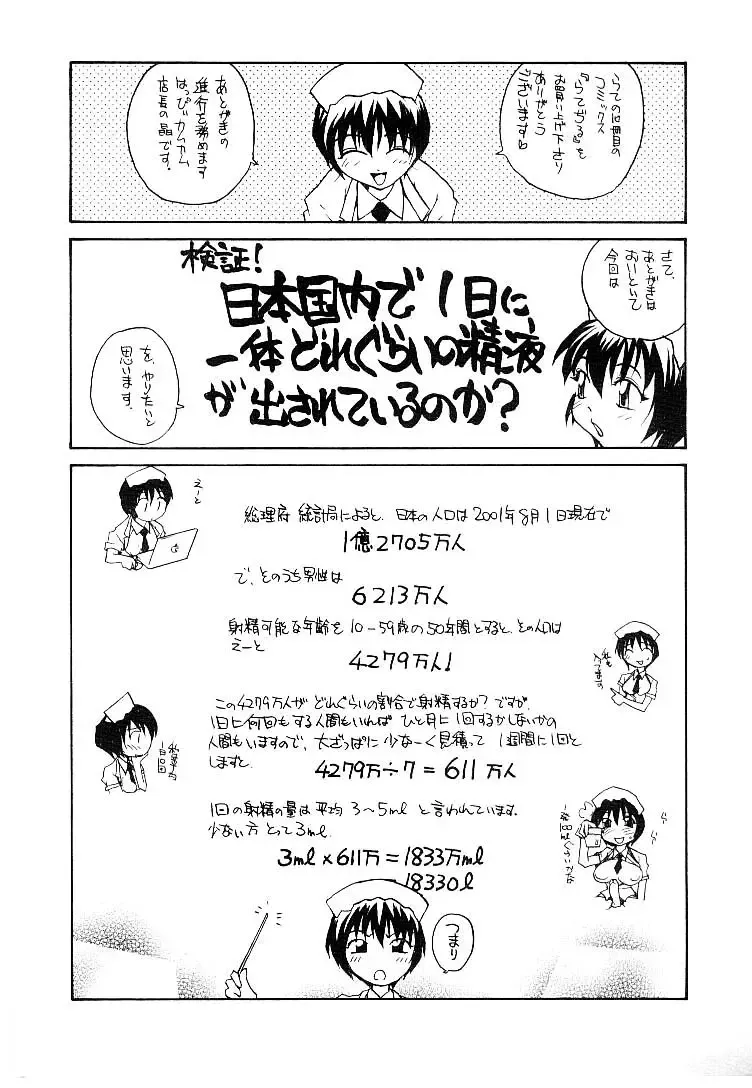 らつての10冊目の
コミックス
『らてぢる』を
お買い上げ下さり
ありがとう
ございます♡
あとがきの
進行を務めます
はっぴぃカムカム
店長の晶です。
さて、
あとがきは
おいといて
今回は
検証!
日本国内で1日に、
一体どれぐらいの精液
が出されているのか?
を、やりたいと
思います。
えーと
総理府 統計局によると、日本の人口は2001年8月1日現在で
1億2705万人
で、そのうち男性は
6213万人
射精可能な年齢を10-59歳の50年間とすると、その人口は
えーと
4279万人!
私も
入ってます
この4279万人がどれぐらいの割合で射精するか?ですが、
1日に何回もする人間もいれば ひと月に1回するかしないかの
人間もいますので、大ざっぱに少なーく見積って 1週間に1回と
しますと、
4279万÷7=611万人
私は平均
1日10回
1回の射精の量は平均3〜5mlと言われています。
少ない方とって3ml.
3ml×611万=1833万ml
=18330l
一発100ml
ぐらいかな
つまり